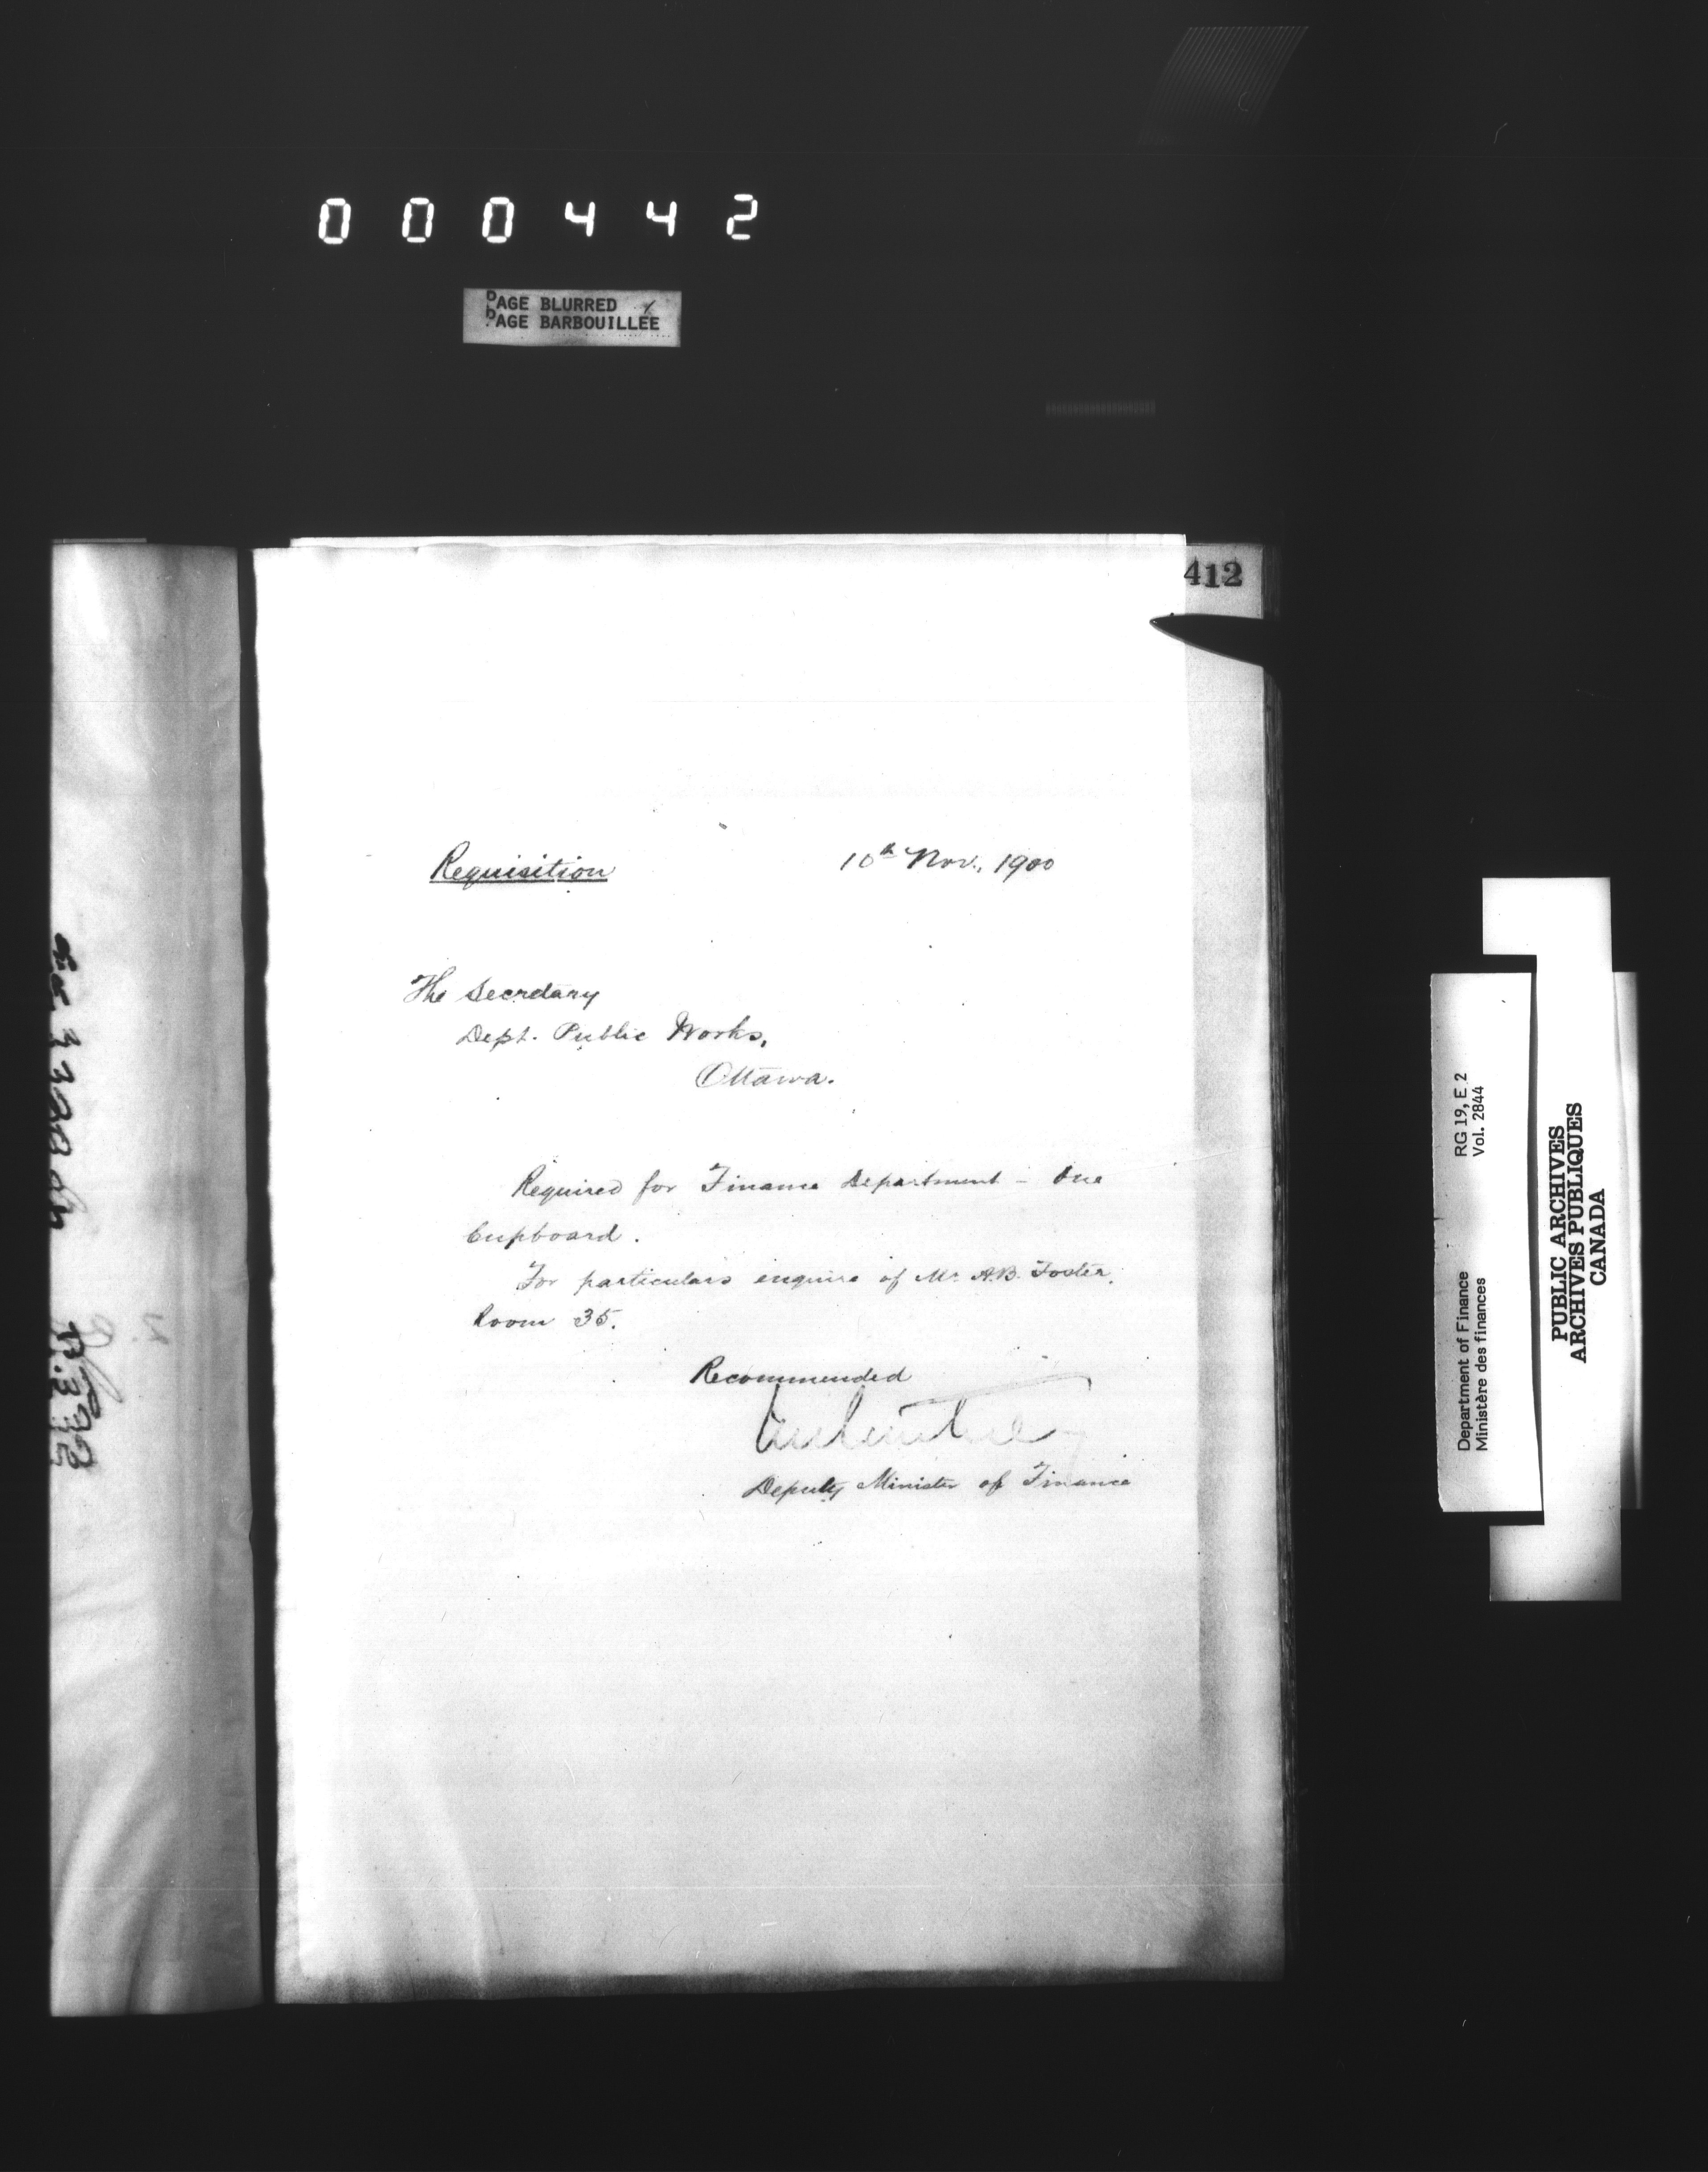 000442
PAGE BLURRED
PAGE BARBOUILLÉE
412
Requisition 10th Nov., 1900
The Secretary
Dept. Public Works,
Ottawa.
Required for Finance Department - One
Cupboard.
For particulars enquire of Mr. A.B. Foster,
Room 35.
Recommended
Deputy Minister of Finance
Department of Finance RG 19, E.2
Ministère des finances Vol. 2844
PUBLIC ARCHIVES
ARCHIVES PUBLIQUES
CANADA